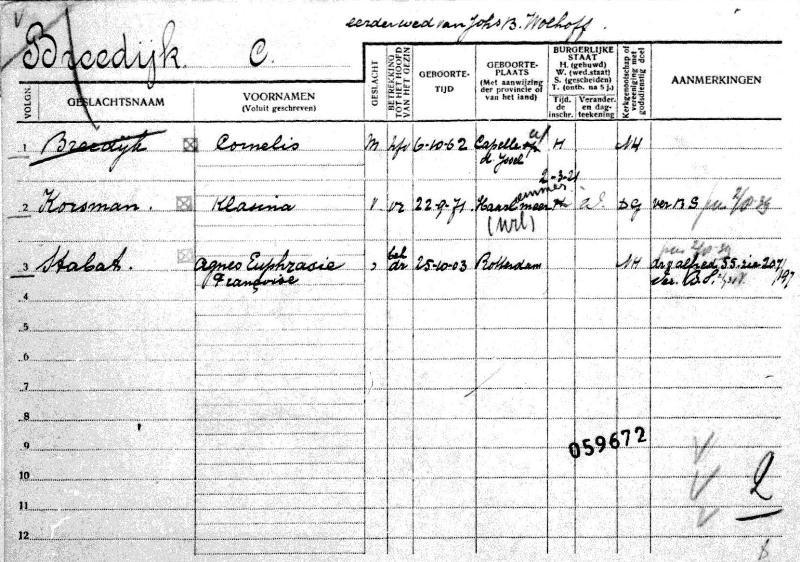 eerder wed van Johs B. Wolhoff.
Breedijk. C.
VOLGN.
GESLACHTSNAAM
VOORNAMEN
(Voluit geschreven)
GESLACHT
BETREKKING
TOT HET HOOFD
VAN HET GEZIN
GEBOORTE-
TIJD
GEBOORTE-
PLAATS
(Met aanwijzing
der provincie of
van het land)
BURGERLIJKE
STAAT
H. (gehuwd)
W. (wed.staat)
S. (gescheiden)
T. (ontb. na 5 j.)
Tijd.
de
inschr.
Verander.
en dag-
teekening
Kerkgenootschap of
vereeniging met
godsdienstig doel
AANMERKINGEN
1 Breedijk Cornelis M hfd 6-10-62 Capelle a/
d. Yssel H NH
2-3-21
2 Korsman. Klasina V vr 22-9-71 Haarlemmermeer
(NH) DG ver B S
3 Stabat. Agnes Euphrasie
Françoise bel
dr 25-10-03 Rotterdam NH
4
5
6
7
8
9
10
11
12
059672
2